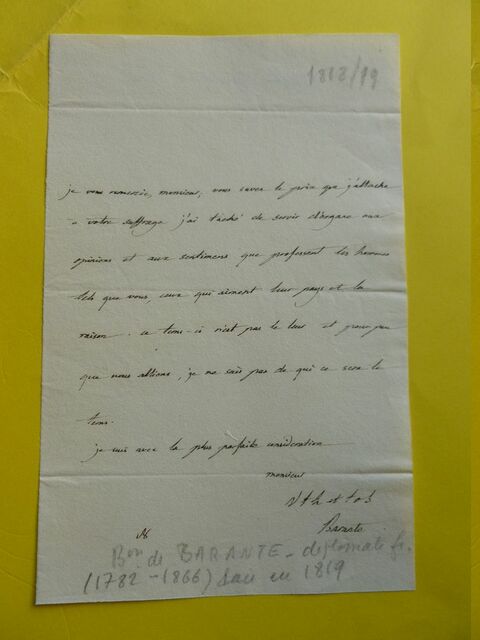 1818/19
je vous remercie, monsieur, vous savez le prix que j'attache
a votre suffrage j'ai taché de servir d'organe aux
opinions et aux sentimens que professent les hommes
tels que vous, ceux qui aiment leur pays et la
raison. ce tems-ci n'est pas le leur et pour peu
que nous allions, je ne sais pas de qui ce sera le
tems.
je suis avec la plus parfaite consideration
monsieur
V t h et t o b
Barante
Bon de BARANTE - diplomate fr.
(1782 - 1866) en 1819